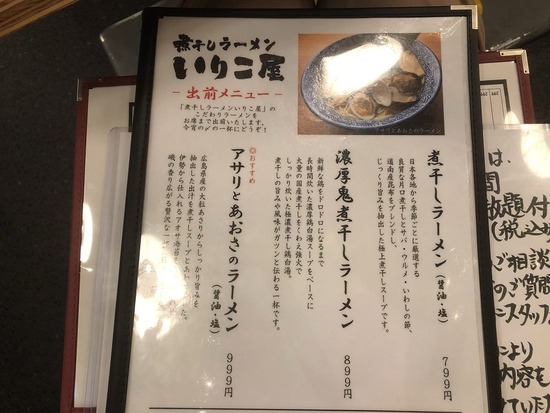 煮干しラーメン
いりこ屋
－ 出前メニュー －
「煮干しラーメンいりこ屋」の
こだわりラーメンを
お席まで出前いたします。
今宵の〆の一杯にどうぞ！
アサリとあおさのラーメン
煮干しラーメン（醤油・塩）
日本各地から季節ごとに厳選する
良質な片口煮干しとサバ・ウルメ・いわしの節、
道南産昆布をブレンドし、
じっくり旨みを抽出した極上煮干しスープです。
799円
濃厚鬼煮干しラーメン
新鮮な鶏をドロドロになるまで
長時間炊いた濃厚鶏白湯スープをベースに
大量の国産煮干しをくわえ強火で
しっかり炊いた極濃煮干し鶏白湯。
煮干しの旨みや風味がガツンと伝わる一杯です。
899円
おすすめ
アサリとあおさのラーメン（醤油・塩）
広島県産の大粒あさりからしっかり旨みを
抽出した出汁を煮干しスープとあわ
伊勢から仕入れるアオサ海苔
磯の香り広がる贅沢な一
999円
は、
間
放題付
（税込
ご相談
のご質問
スタッフ
により
内容を